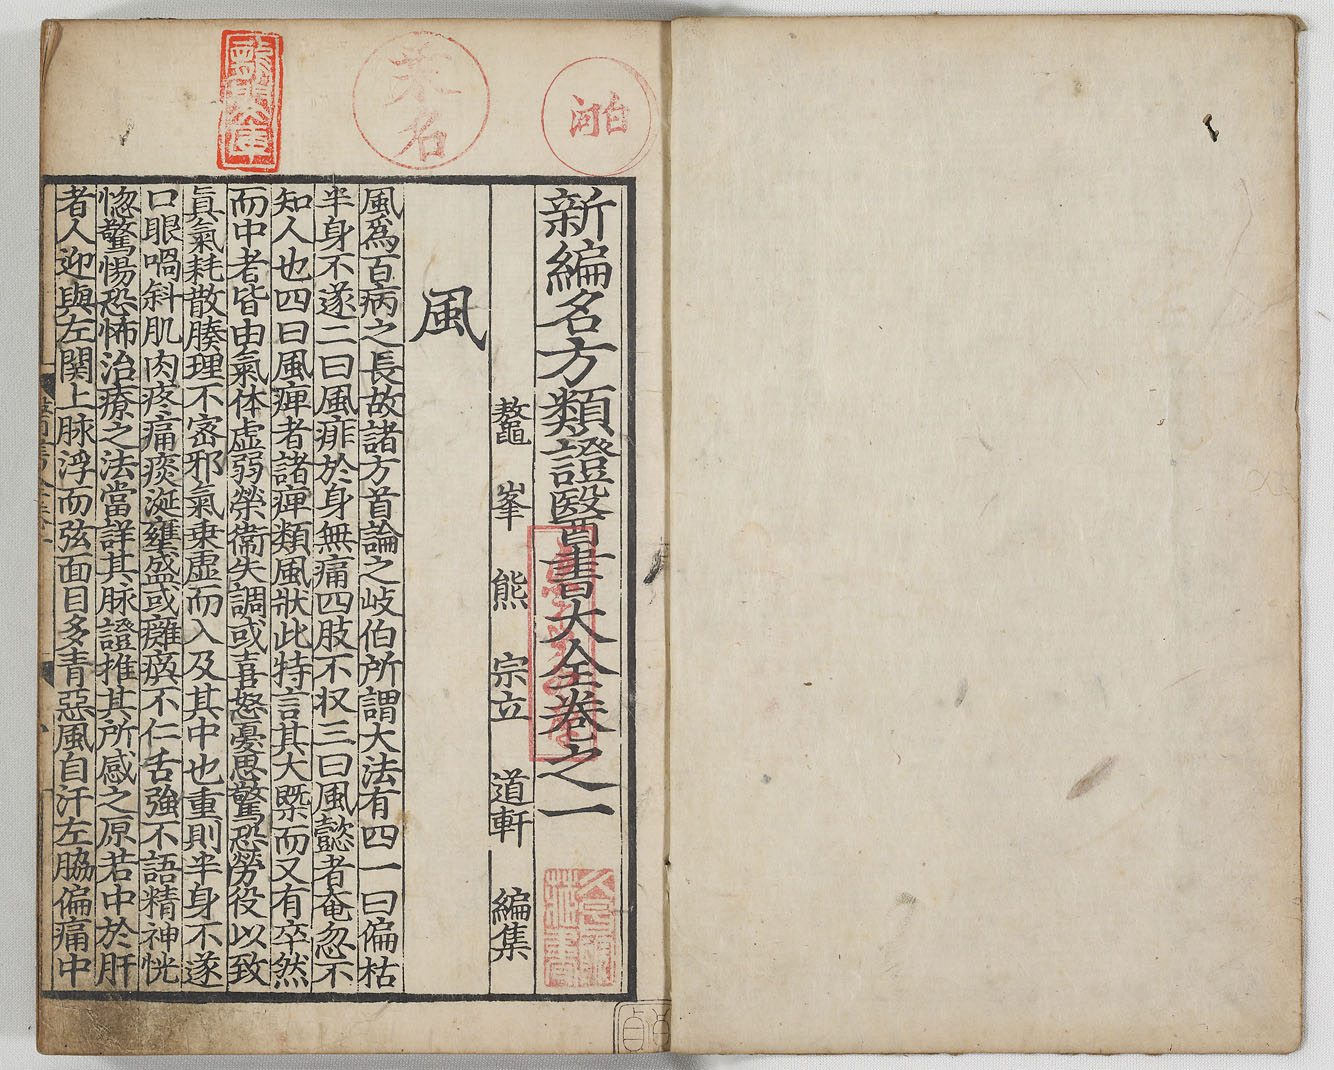 新編名方類證醫書大全卷之一
鼇峯熊宗立道軒編集
風
風爲百病之長故諸方首論之岐伯所謂大法有四一曰偏枯
半身不遂二曰風痱於身無痛四肢不収三曰風懿者奄忽不
知人也四曰風痺者諸痺類風狀此特言其大槩而又有卒然
而中者皆由氣体虚弱榮衞失調或喜怒憂思驚恐勞役以致
眞氣耗散腠理不密邪氣乗虛而入及其中也重則半身不遂
口眼喎斜肌肉疼痛痰涎壅盛或癱瘓不仁舌強不語精神恍
惚驚惕恐怖治療之法當詳其脉證推其所感之原若中於肝
者人迎與左関上脉浮而弦面目多青惡風自汗左脇偏痛中
白河
桒名